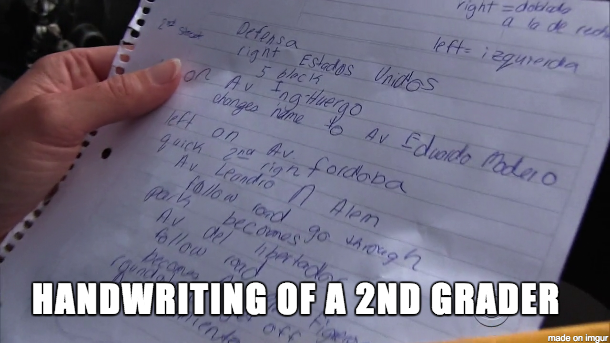 right = doblado
a la de
left = izquierda
2nd street
Defensa
right Estados Unidos
5 block
on Av Ing Huergo
changes name to Av Eduardo Madero
left on Av. fordoba
quick 2nd righ
Av Leandro N Alem
follow road go through
park
Av becomes
Av del libertador
follow road
becomes
off
HANDWRITING OF A 2ND GRADER
made on imgur